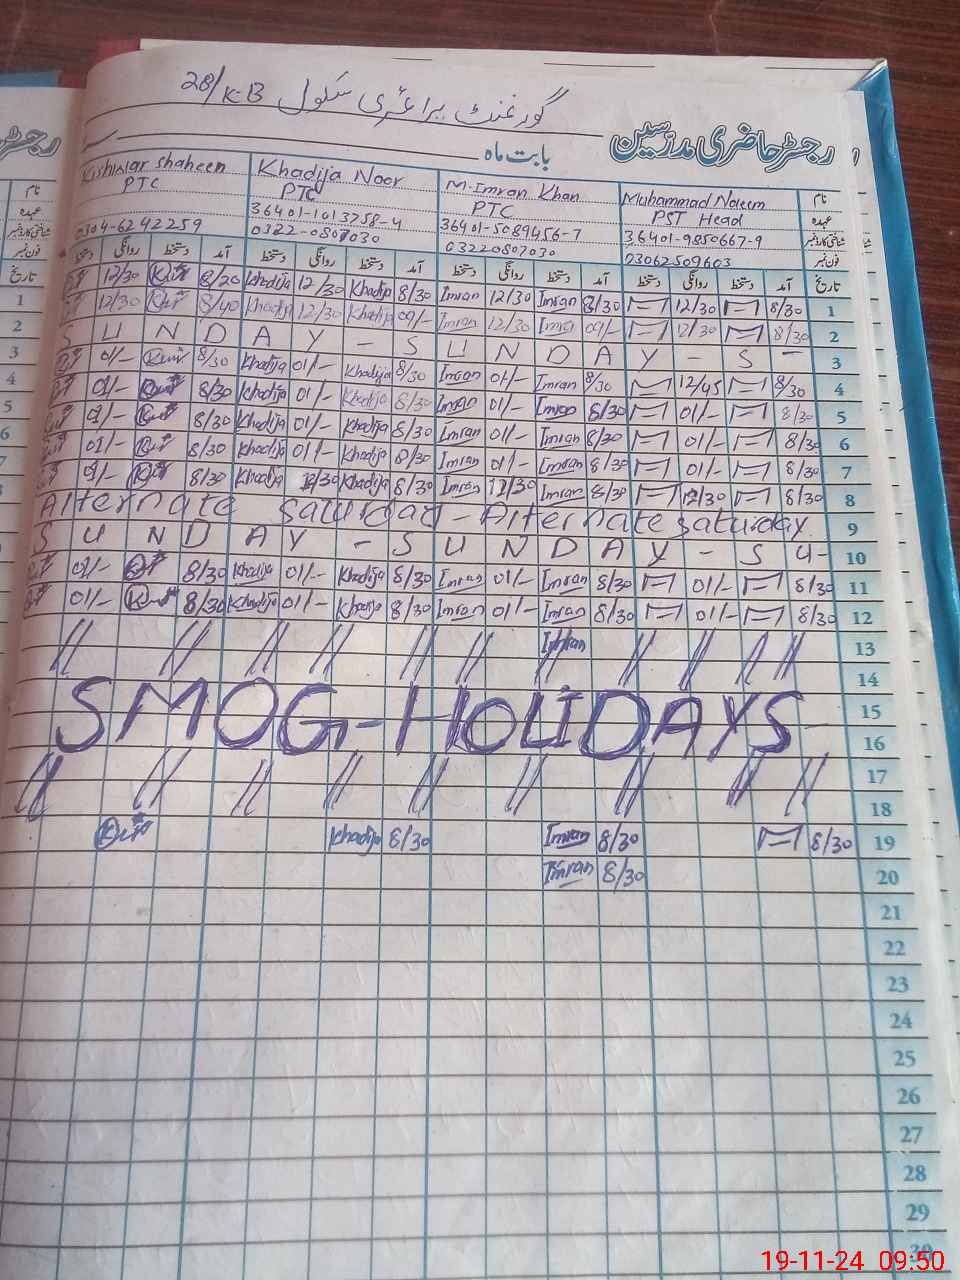 گورنمنٹ پرائمری سکول 28/K-B
رجسٹر حاضری مدرسین
بابت ماہ
Kishwar Shaheen Khadija Noor M-Imran Khan Muhammad Naeem نام
PTC PTC PTC PST Head عہدہ
36401-1013758-4 36401-5089456-7 36401-9850667-9 شناختی کارڈ نمبر
0304-6242259 0322-0807030 03220807030 03062509603 فون نمبر
دستخط روانگی دستخط آمد دستخط روانگی دستخط آمد دستخط روانگی دستخط آمد دستخط روانگی دستخط آمد تاریخ
12/30 8/20 Khadija 12/30 Khadija 8/30 Imran 12/30 Imran 8/30 12/30 8/30 1
12/30 8/40 Khadija 12/30 Khadija 09/- Imran 12/30 Imran 09/- 12/30 8/30 2
S U N D A Y - S U N D A Y - S - 3
01/- 8/30 Khadija 01/- Khadija 8/30 Imran 01/- Imran 8/30 12/45 8/30 4
01/- 8/30 Khadija 01/- Khadija 8/30 Imran 01/- Imran 8/30 01/- 8/30 5
01/- 8/30 Khadija 01/- Khadija 8/30 Imran 01/- Imran 8/30 01/- 8/30 6
01/- 8/30 Khadija 01/- Khadija 8/30 Imran 01/- Imran 8/30 01/- 8/30 7
01/- 8/30 Khadija 12/30 Khadija 8/30 Imran 12/30 Imran 8/30 12/30 8/30 8
Alternate Saturday - Alternate Saturday 9
S U N D A Y - S U N D A Y - S U - 10
01/- 8/30 Khadija 01/- Khadija 8/30 Imran 01/- Imran 8/30 01/- 8/30 11
01/- 8/30 Khadija 01/- Khadija 8/30 Imran 01/- Imran 8/30 01/- 8/30 12
// // // // // // Imran // // // // 13
14
SMOG-HOLIDAYS 15
16
// // // // // // // // // 17
18
Khadija 8/30 Imran 8/30 8/30 19
Imran 8/30 20
21
22
23
24
25
26
27
28
29
30
19-11-24 09:50